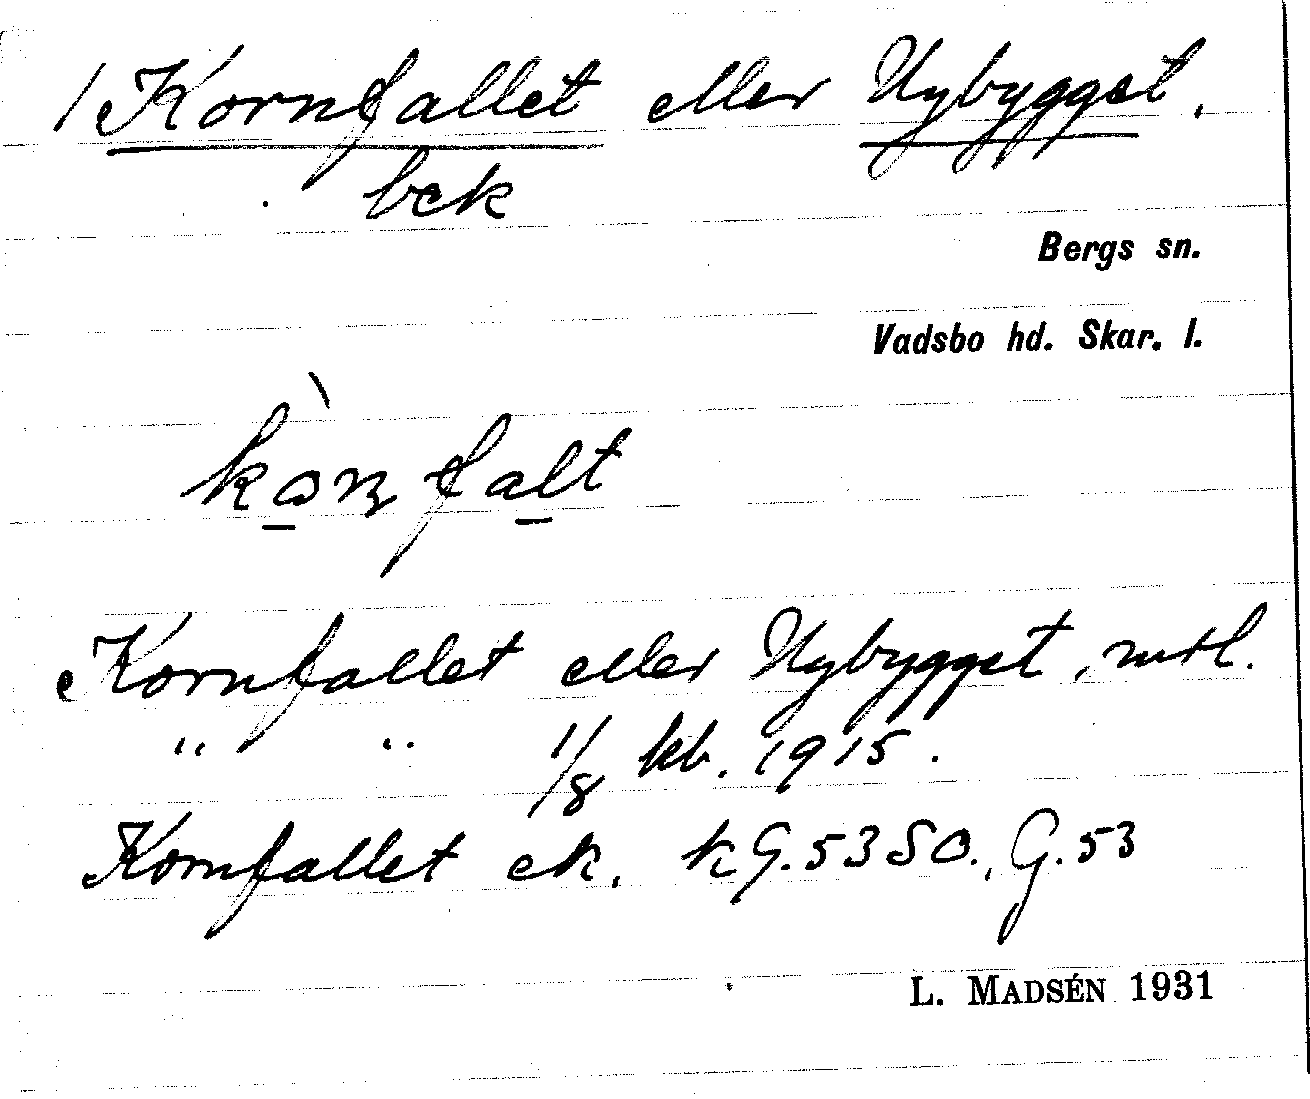 1 Kornfallet eller Nybygget.
bek
Bergs sn.
Vadsbo hd. Skar. l.
Kornfallet eller Nybygget, mtl.
" " 1/8 kb. 1915.
Kornfallet ek. kG. 53 SO., G. 53
L. MADSÉN 1931